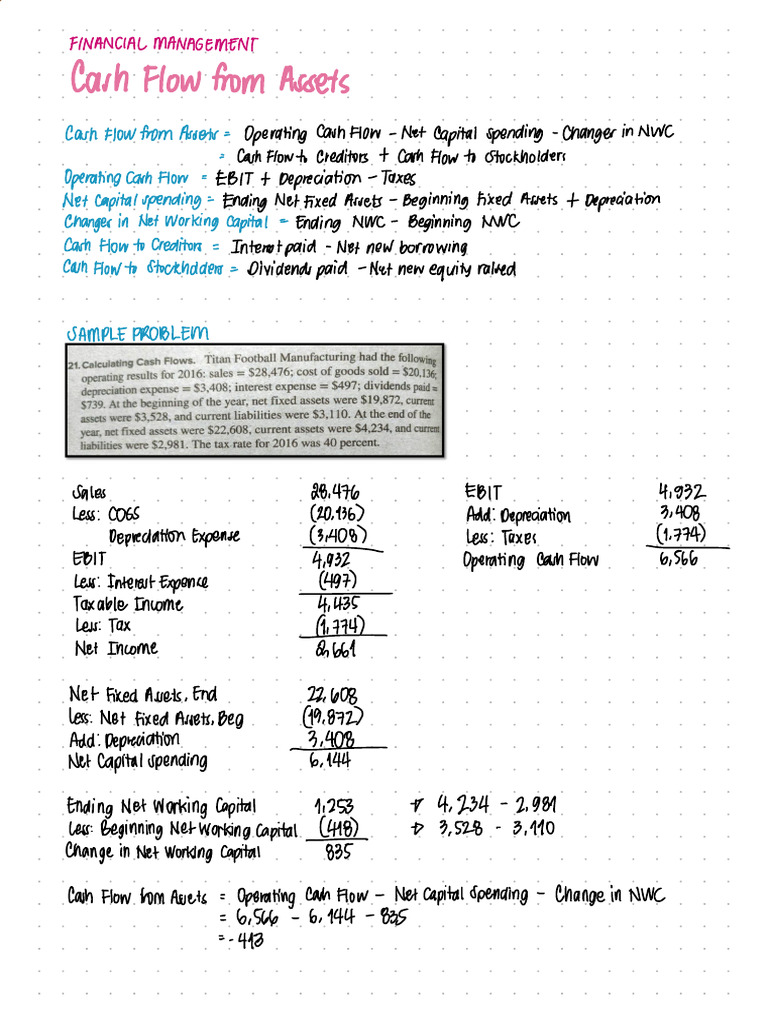 FINANCIAL MANAGEMENT
Cash Flow from Assets
Cash Flow from Assets = Operating Cash Flow - Net Capital Spending - Changes in NWC
= Cash Flow to Creditors + Cash Flow to Stockholders
Operating Cash Flow = EBIT + Depreciation - Taxes
Net Capital Spending = Ending Net Fixed Assets - Beginning Fixed Assets + Depreciation
Changes in Net Working Capital = Ending NWC - Beginning NWC
Cash Flow to Creditors = Interest paid - Net new borrowing
Cash Flow to Stockholders = Dividends paid - Net new equity raised
SAMPLE PROBLEM
21. Calculating Cash Flows. Titan Football Manufacturing had the following
operating results for 2016: sales = $28,476; cost of goods sold = $20,136;
depreciation expense = $3,408; interest expense = $497; dividends paid =
$739. At the beginning of the year, net fixed assets were $19,872, current
assets were $3,528, and current liabilities were $3,110. At the end of the
year, net fixed assets were $22,608, current assets were $4,234, and current
liabilities were $2,981. The tax rate for 2016 was 40 percent.
Sales 28,476
Less: COGS (20,136)
Depreciation Expense (3,408)
EBIT 4,932
Less: Interest Expence (497)
Taxable Income 4,435
Less: Tax (1,774)
Net Income 2,661
EBIT 4,932
Add: Depreciation 3,408
Less: Taxes (1,774)
Operating Cash Flow 6,566
Net Fixed Assets, End 22,608
Less: Net Fixed Assets, Beg (19,872)
Add: Depreciation 3,408
Net Capital Spending 6,144
Ending Net Working Capital 1,253 → 4,234 - 2,981
Less: Beginning Net Working Capital (418) → 3,528 - 3,110
Change in Net Working Capital 835
Cash Flow from Assets = Operating Cash Flow - Net Capital Spending - Change in NWC
= 6,566 - 6,144 - 835
= -413